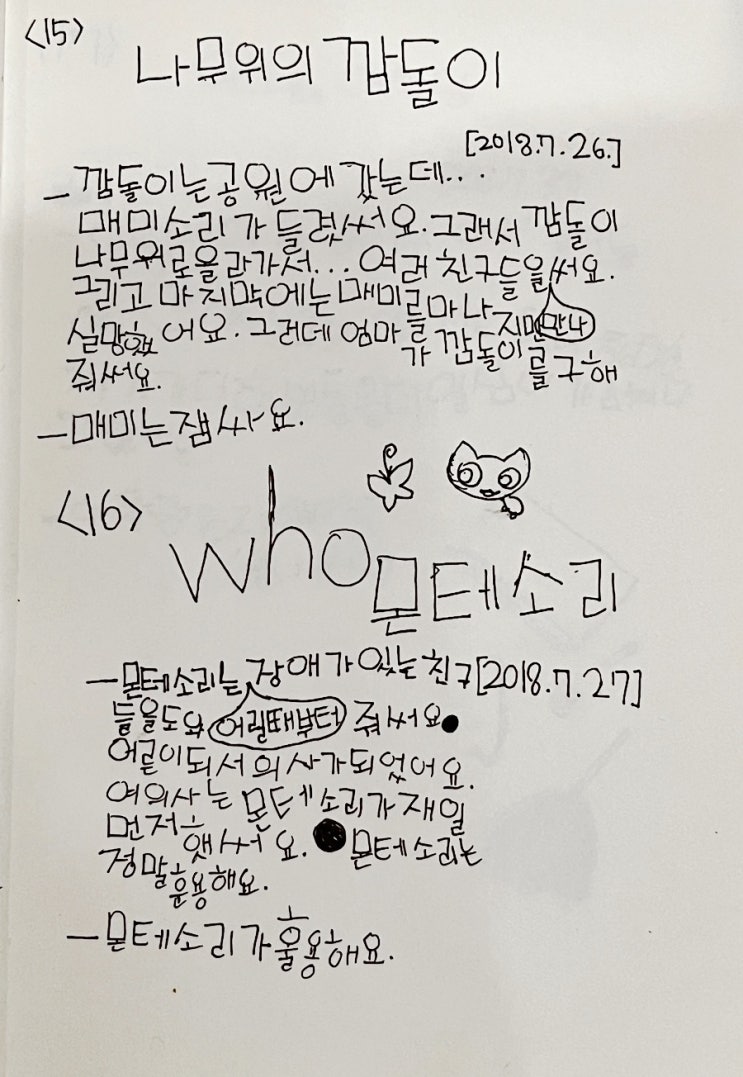 <15>
나무위의 깜돌이
[2018.7.26.]
- 깜돌이는공원에 갔는데...
매미소리가 들렸써요.그래서 깜돌이
나무위로올라가서... 여러친구들을써요.
만나
그리고 마지막에는매미를마나지만
실망했어요. 그런데 엄마를가 깜돌이를구해
줘써요.
- 매미는잼싸요.
<16>
who몬테소리
- 몬테소리는 장애가있는친구[2018.7.27]
들을도와 어릴때부터 줘써요
어른이되서의사가되었어요.
여의사는 몬테소리가재일
먼저했써요. 몬테소리는
정말훈용해요.
- 몬테소리가훌용해요.